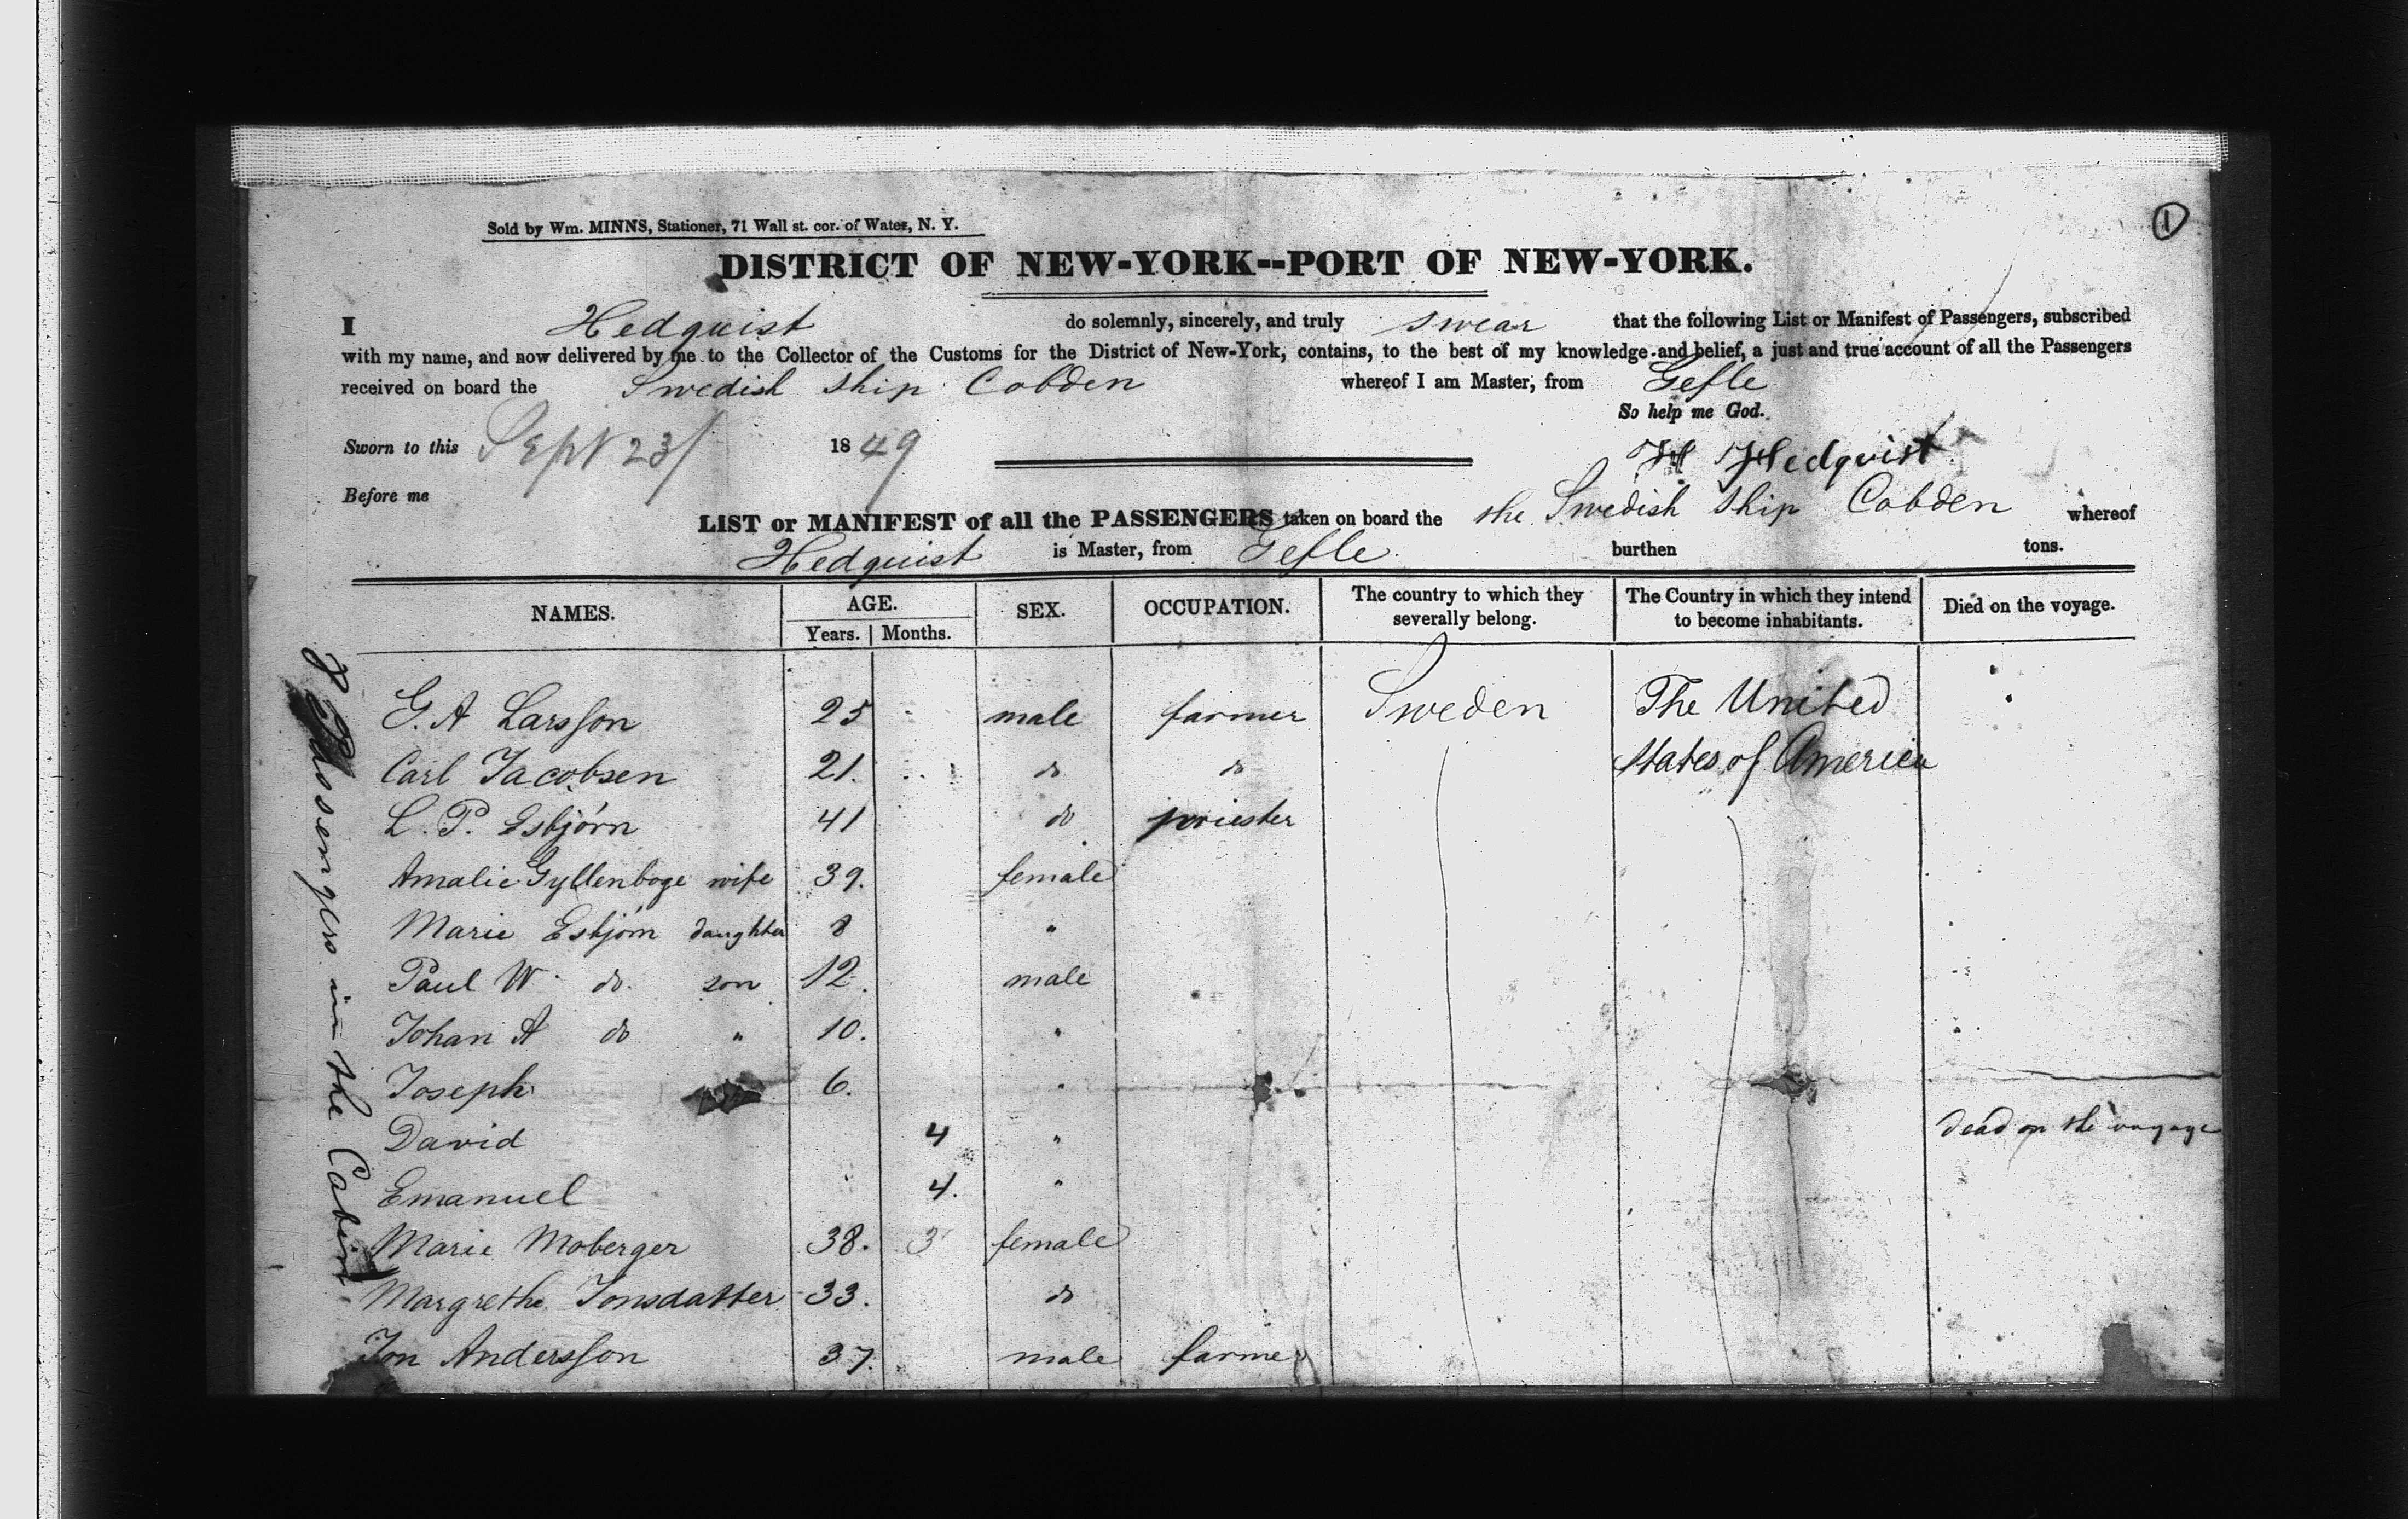 1
Sold by Wm. MINNS, Stationer, 71 Wall st. cor. of Water, N. Y.
DISTRICT OF NEW-YORK--PORT OF NEW-YORK.
I Hedquist do solemnly, sincerely, and truly swear that the following List or Manifest of Passengers, subscribed
with my name, and now delivered by me to the Collector of the Customs for the District of New-York, contains, to the best of my knowledge and belief, a just and true account of all the Passengers
received on board the Swedish Ship Cobden whereof I am Master, from Gefle
So help me God.
Sworn to this Sept 23 1849
Hedquist
Before me
LIST or MANIFEST of all the PASSENGERS taken on board the the Swedish Ship Cobden whereof
Hedquist is Master, from Gefle burthen tons.
NAMES. AGE. Years. Months. SEX. OCCUPATION. The country to which they severally belong. The Country in which they intend to become inhabitants. Died on the voyage.
8 Passengers in the Cabin
G. A Larsson 25 male farmer Sweden The United
Carl Jacobsen 21. do do States of America
L. P. Esbjórn 41 do priester
Amalie Gyllenboge wife 39. female
Marie Esbjórn daughter 8 "
Paul W. do. son 12. male
Johan A do " 10. "
Joseph 6. "
David 4 " dead on the voyage
Emanuel 4. "
Marie Moberger 38. 3 female
Margrethe Jonsdatter 33. do
Jon Andersson 37. male farmer